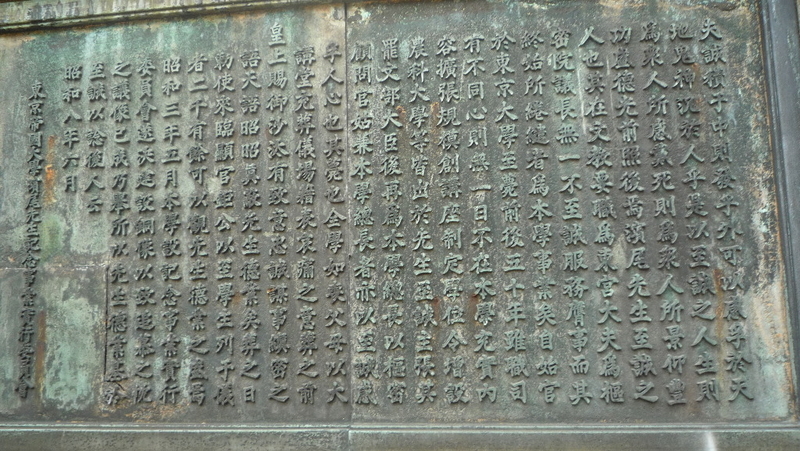 夫誠積于中則發乎外可以感孚於天
地鬼神況於人乎是以至誠之人生則
為衆人所感慕死則為衆人所景仰豐
功盛德光前照後焉濱尾先生至誠之
人也其在文教要職為東宮大夫為樞
密院議長無一不至誠服務膺事而其
終始所綣繾者為本學事業矣自始官
於東京大學至薨前後五十年雖職司
有不同心則無一日不在本學充實內
容擴張規模創講座制定學位令增設
農科大學等皆出於先生至誠主張其
罷文部大臣後再為本學總長以樞密
顧問官始兼本學總長者亦以至誠感
孚人心也其薨也全學如喪父母以大
講堂充葬儀場諸表哀痛之意葬之前
皇上賜御沙汰有致意忠誠謀事縝密之
語天語昭昭真敬先生德業矣葬之日
勅使來臨顯官鉅公以至學生列于儀
者二千有餘可以觀先生德業之盛焉
昭和三年五月本學設記念事業實行
委員會遂決建設銅像以致追慕之忱
之議像已成乃舉所以先生德業基於
至誠以諗後人云
昭和八年六月
東京帝國大學濱尾先生記念事業實行委員會